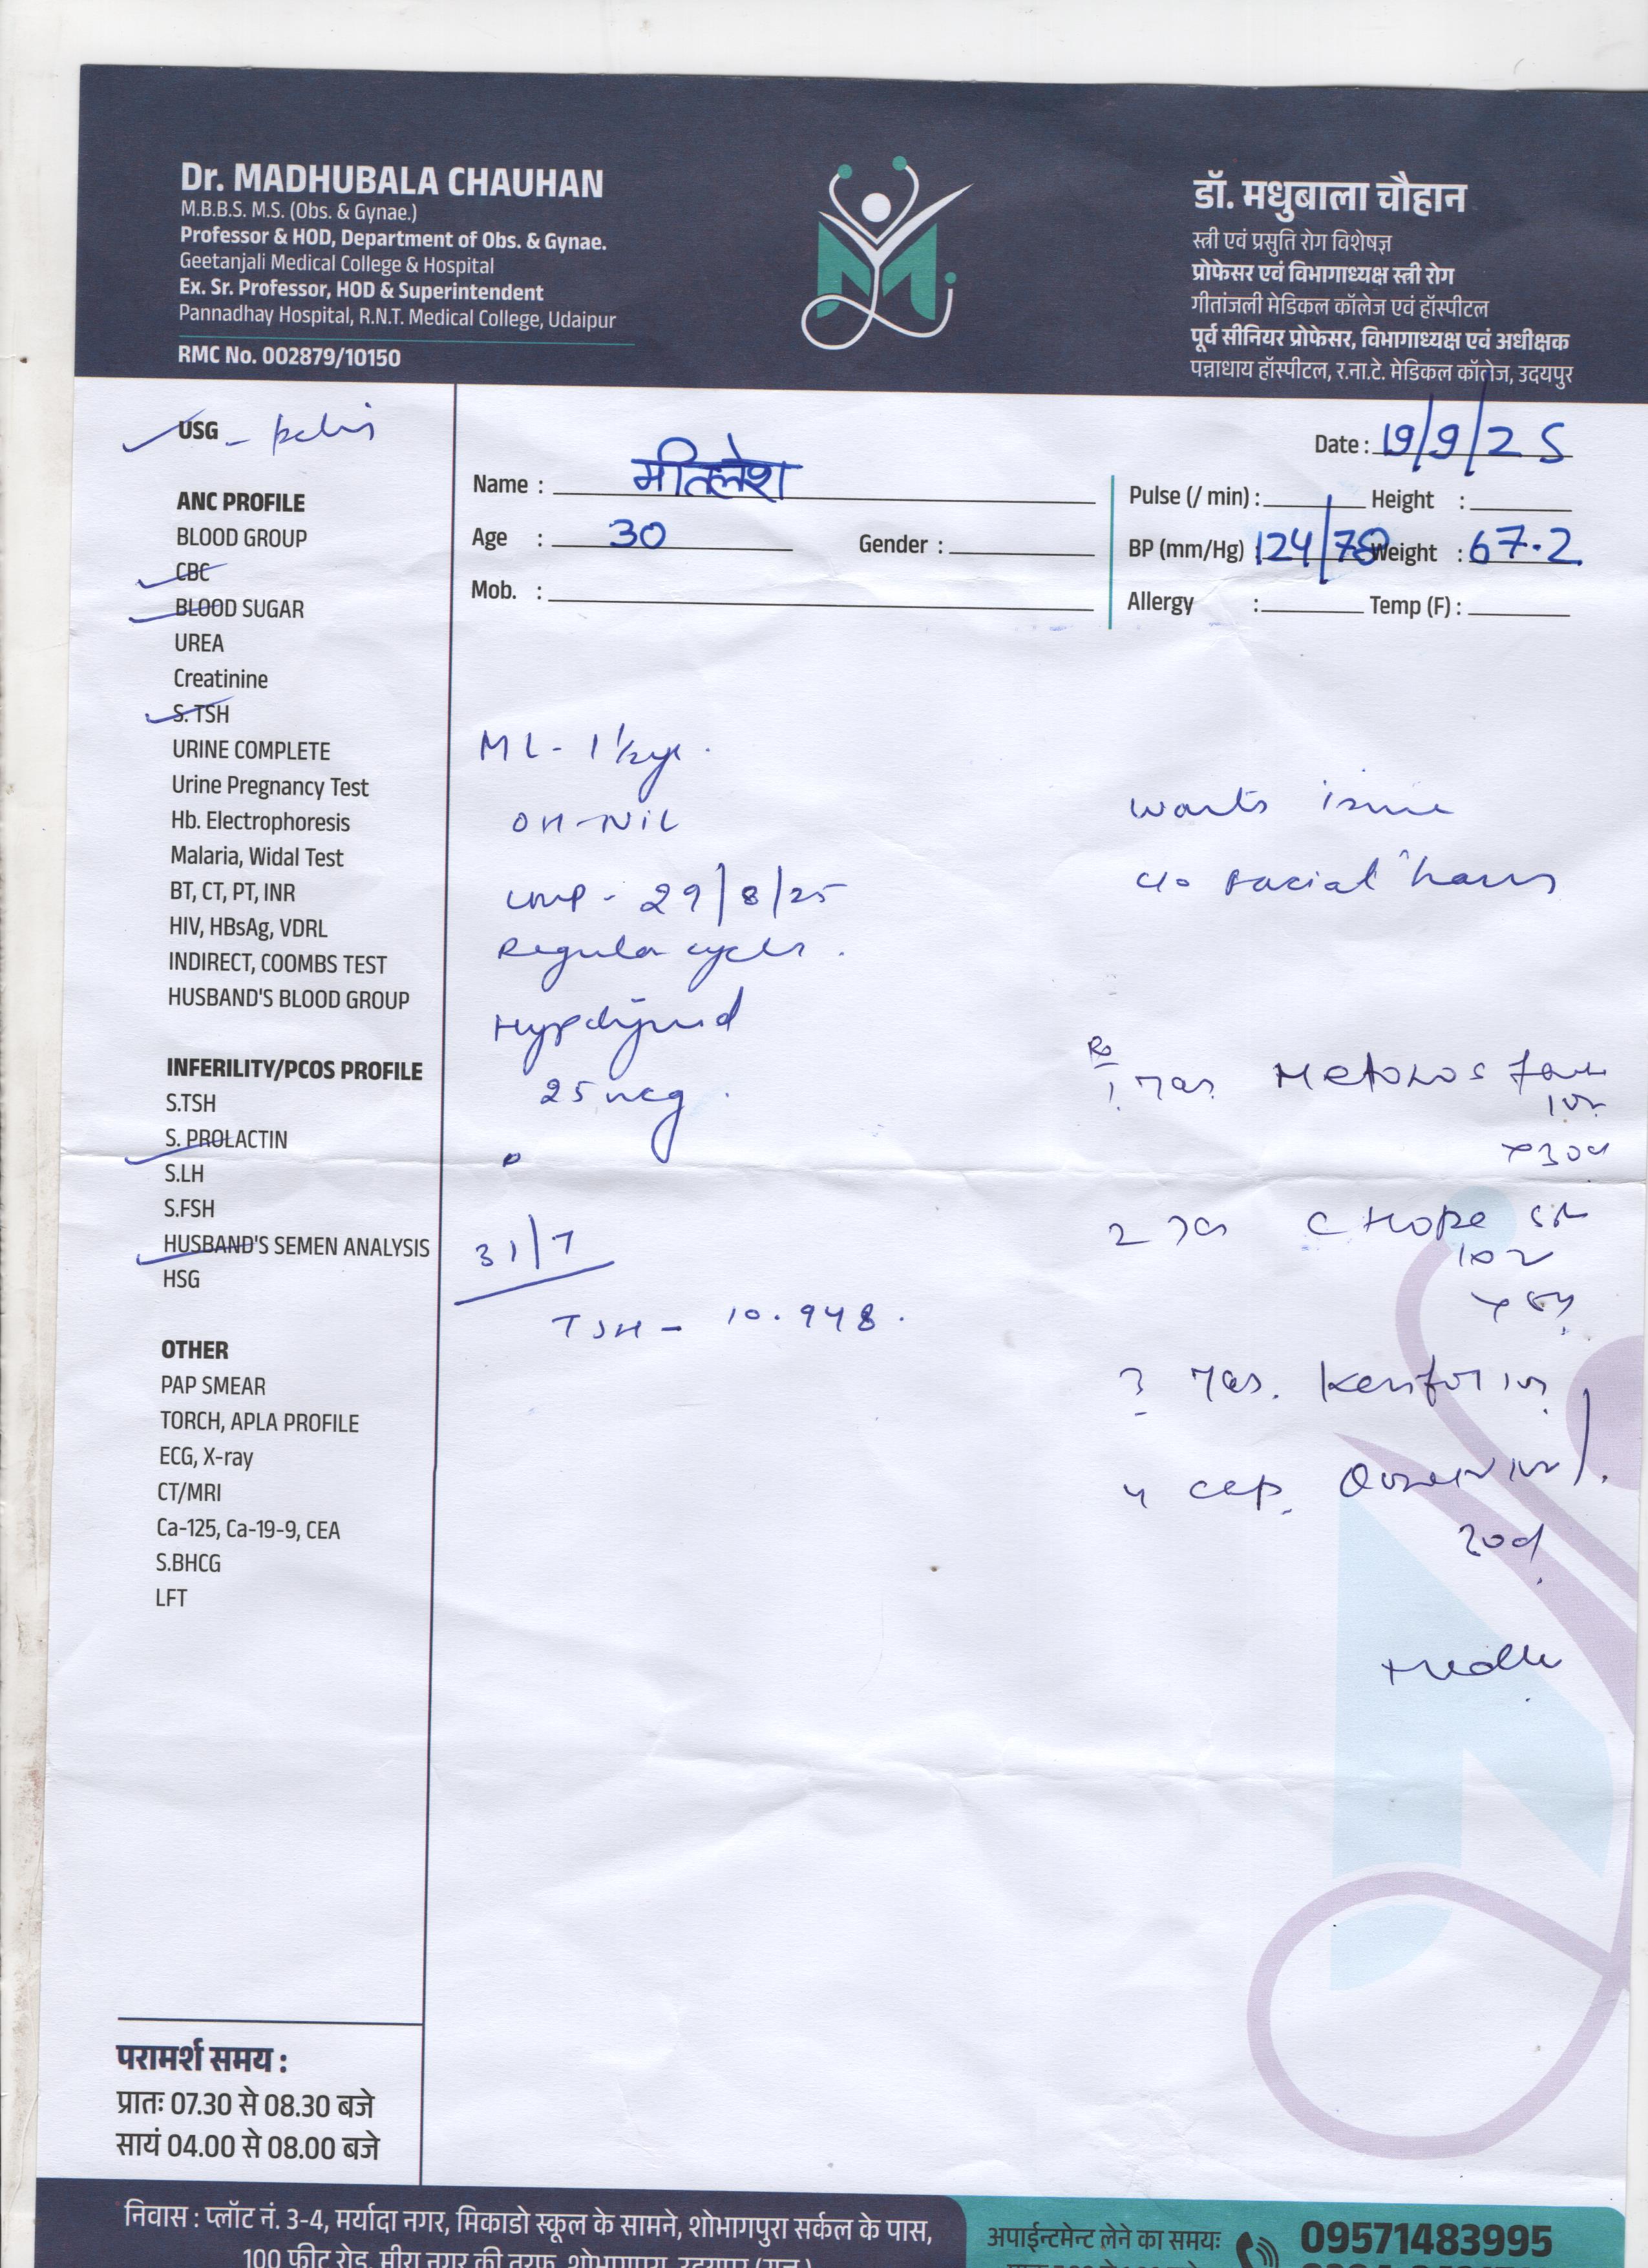 Dr. MADHUBALA CHAUHAN
M.B.B.S. M.S. (Obs. & Gynae.)
Professor & HOD, Department of Obs. & Gynae.
Geetanjali Medical College & Hospital
Ex. Sr. Professor, HOD & Superintendent
Pannadhay Hospital, R.N.T. Medical College, Udaipur
RMC No. 002879/10150
डॉ. मधुबाला चौहान
स्त्री एवं प्रसुति रोग विशेषज्ञ
प्रोफेसर एवं विभागाध्यक्ष स्त्री रोग
गीतांजली मेडिकल कॉलेज एवं हॉस्पीटल
पूर्व सीनियर प्रोफेसर, विभागाध्यक्ष एवं अधीक्षक
पन्नाधाय हॉस्पीटल, र.ना.टे. मेडिकल कॉलेज, उदयपुर
Date : 19/9/25
Name : मीतलेश
Pulse (/ min) : Height :
Age : 30 Gender :
BP (mm/Hg) : 124/78 Weight : 67.2
Mob. :
Allergy : Temp (F) :
USG - pelvis
ANC PROFILE
BLOOD GROUP
CBC
BLOOD SUGAR
UREA
Creatinine
S. TSH
URINE COMPLETE
Urine Pregnancy Test
Hb. Electrophoresis
Malaria, Widal Test
BT, CT, PT, INR
HIV, HBsAg, VDRL
INDIRECT, COOMBS TEST
HUSBAND'S BLOOD GROUP
INFERILITY/PCOS PROFILE
S.TSH
S. PROLACTIN
S.LH
S.FSH
HUSBAND'S SEMEN ANALYSIS
HSG
OTHER
PAP SMEAR
TORCH, APLA PROFILE
ECG, X-ray
CT/MRI
Ca-125, Ca-19-9, CEA
S.BHCG
LFT
ML - 1 1/2 yr.
OH - NIL
LMP - 29/8/25
Regular cycles.
25 mcg.
31/7
TSH - 10.948.
wants issue
c/o facial hairs
Rx
1
x 30d
2
3
4 cap.
20d
परामर्श समय :
प्रातः 07.30 से 08.30 बजे
सायं 04.00 से 08.00 बजे
निवास : प्लॉट नं. 3-4, मर्यादा नगर, मिकाडो स्कूल के सामने, शोभागपुरा सर्कल के पास,
100 फीट रोड, मीरा नगर की तरफ, शोभागपुरा, उदयपुर (राज.)
अपाईन्टमेन्ट लेने का समयः
09571483995